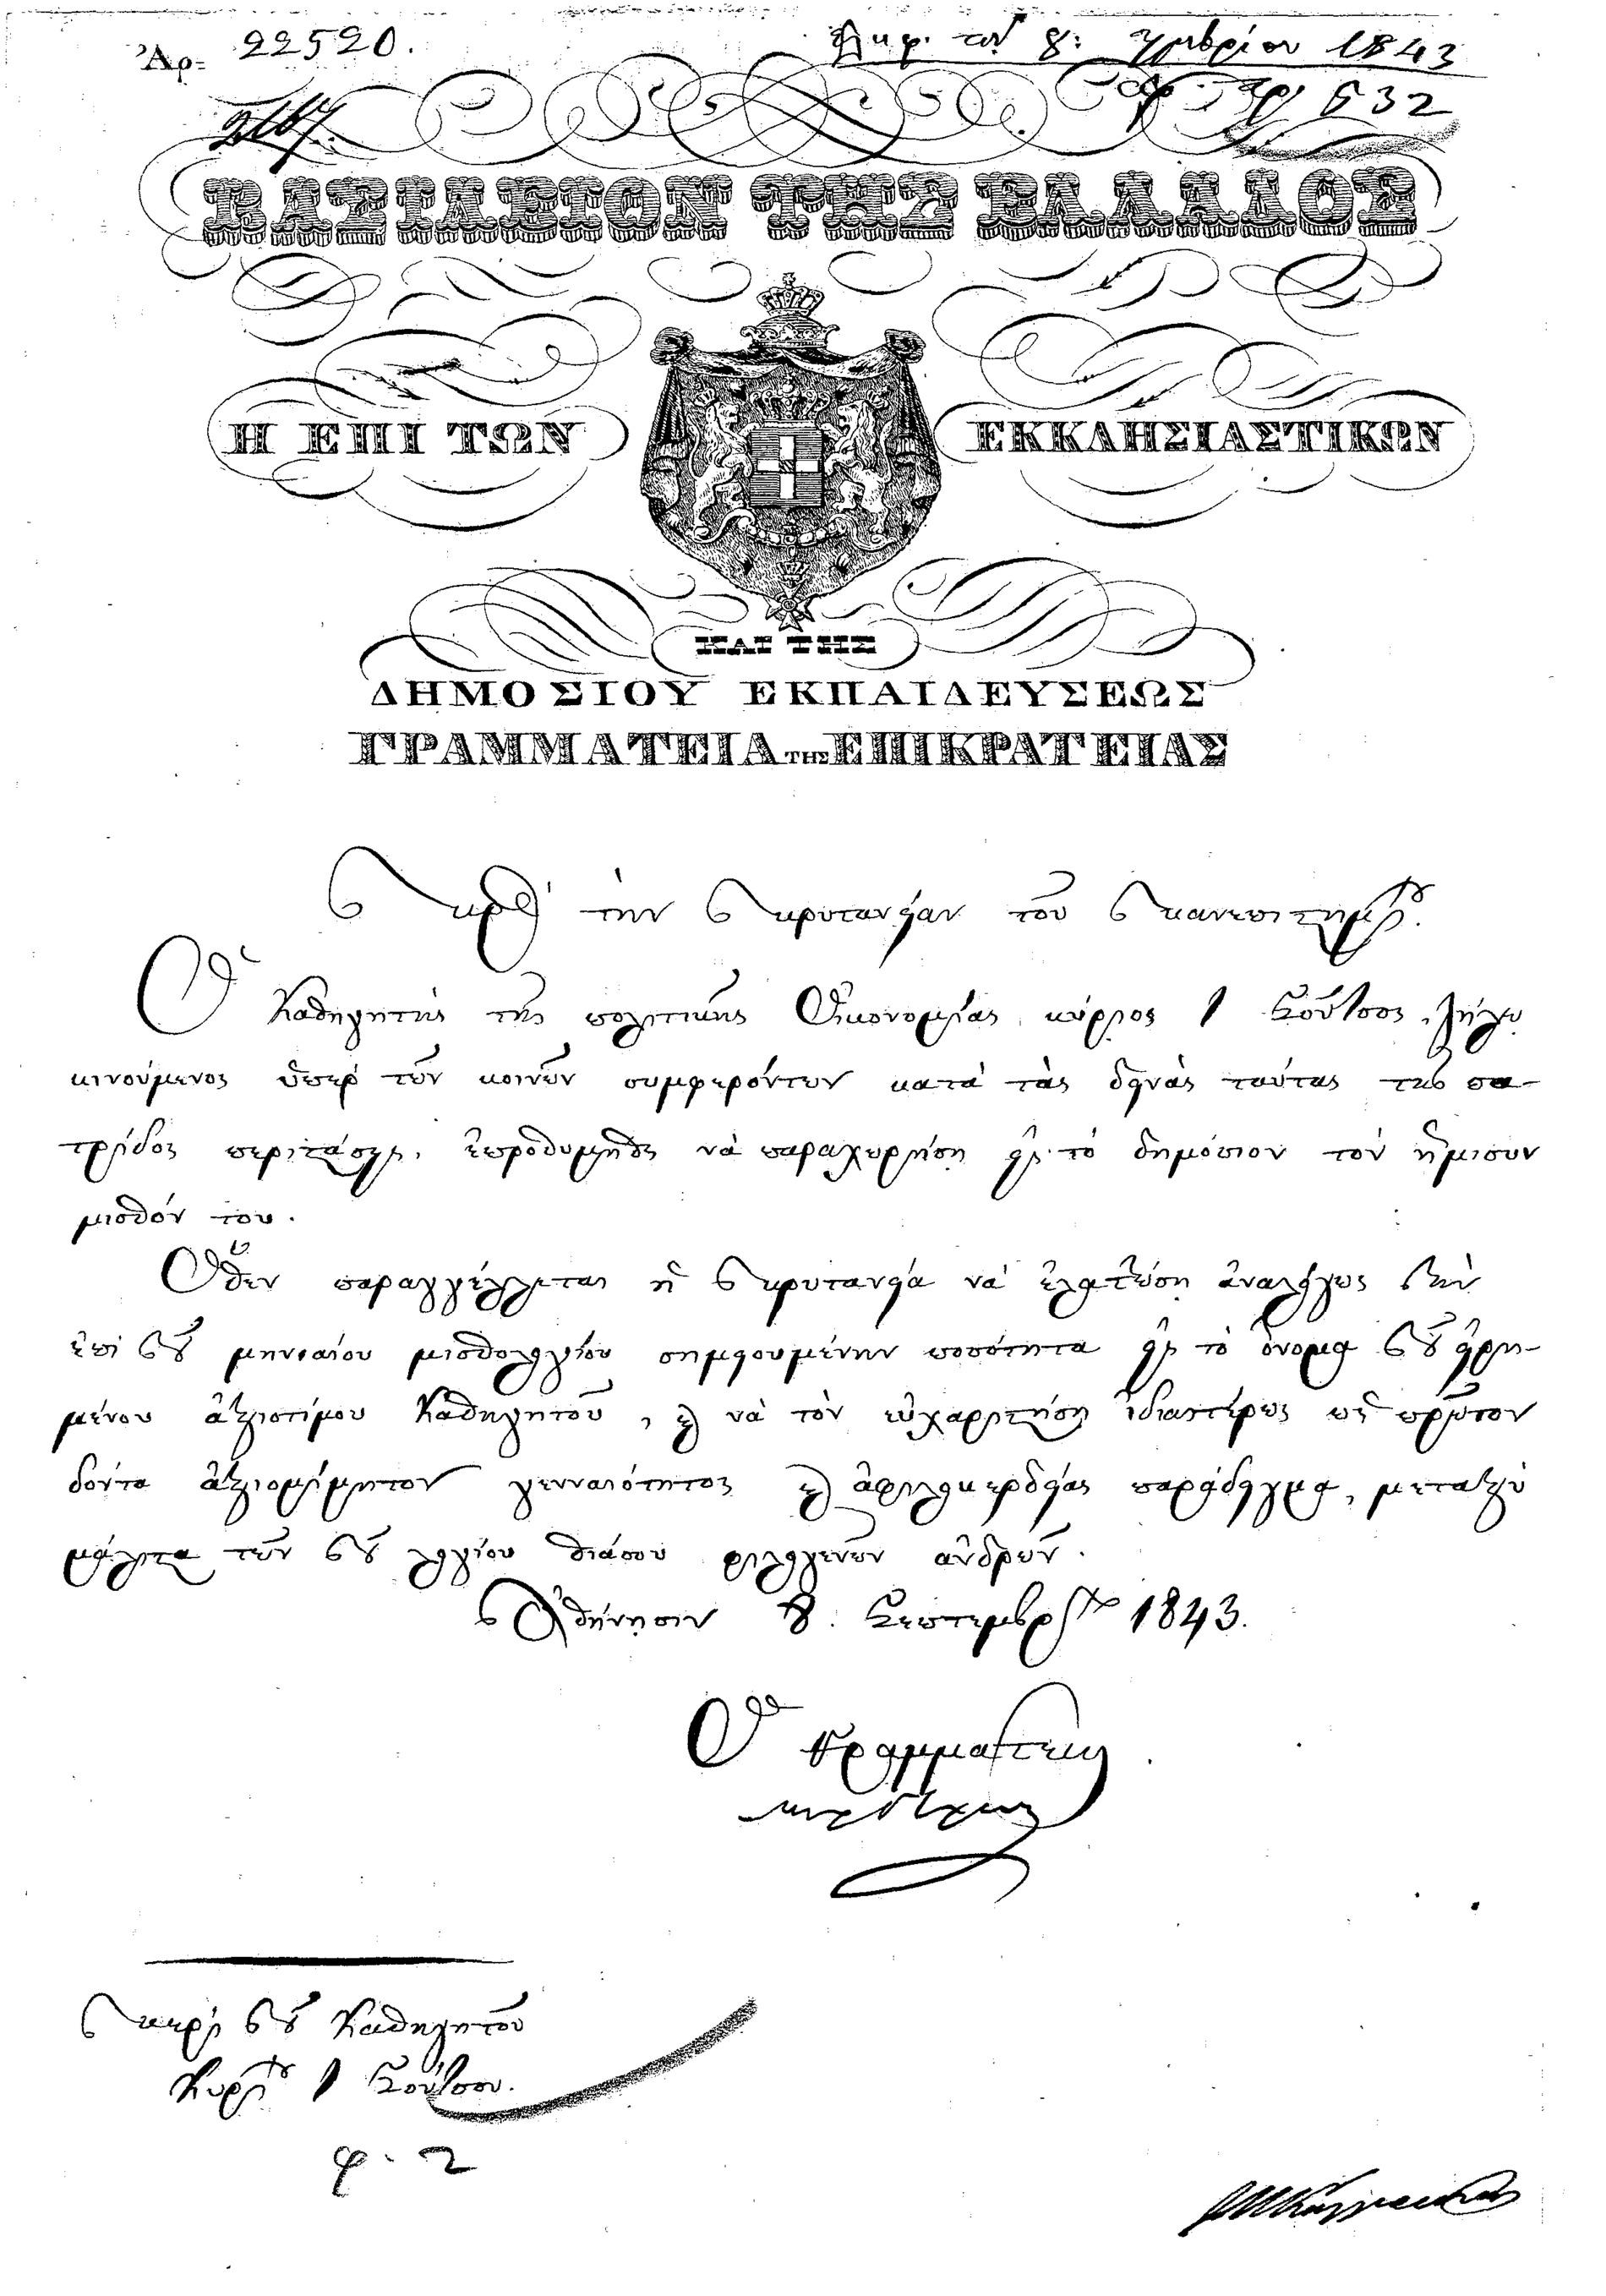 Ἀρ. 22520.
8: 7μβρίου 1843
632
ΒΑΣΙΛΕΙΟΝ ΤΗΣ ΕΛΛΑΔΟΣ
Η ΕΠΙ ΤΩΝ ΕΚΚΛΗΣΙΑΣΤΙΚΩΝ
ΚΑΙ ΤΗΣ
ΔΗΜΟΣΙΟΥ ΕΚΠΑΙΔΕΥΣΕΩΣ
ΓΡΑΜΜΑΤΕΙΑ ΤΗΣ ΕΠΙΚΡΑΤΕΙΑΣ
Πρὸς τὴν Πρυτανείαν τοῦ Πανεπιστημίου.
Ὁ Καθηγητὴς τῆς πολιτικῆς Οἰκονομίας κύριος Ι Σοῦτσος,
κινούμενος ὑπὲρ τῶν κοινῶν συμφερόντων κατὰ τὰς δεινὰς ταύτας τῆς πα-
τρίδος περιστάσεις, ἐπροθυμήθη νὰ παραχωρήσῃ εἰς τὸ δημόσιον τὸν ἥμισυν
μισθόν του.
Ὅθεν παραγγέλλεται ἡ Πρυτανεία νὰ ἐλαττώσῃ ἀναλόγως τὴν
ἐπὶ τοῦ μηνιαίου μισθολογίου σημειουμένην ποσότητα εἰς τὸ ὄνομα τοῦ εἰρη-
μένου ἀξιοτίμου Καθηγητοῦ, καὶ νὰ τὸν εὐχαριστήσῃ ἰδιαιτέρως ὡς πρῶτον
δόντα ἀξιομίμητον γενναιότητος καὶ ἀφιλοκερδείας παράδειγμα, μεταξὺ
μάλιστα τῶν τοῦ λογίου θιάσου φιλογενῶν ἀνδρῶν.
Ἀθήνησιν 8. Σεπτεμβρίου 1843.
Ὁ Γραμματεὺς
Περὶ τοῦ Καθηγητοῦ
Κυρίου Ι Σούτσου.
φ. 2